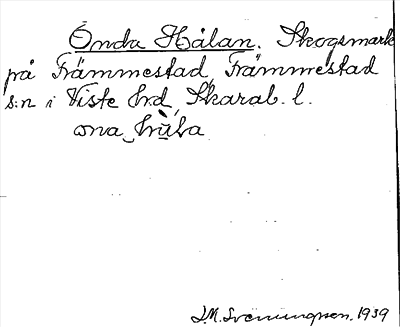 Onda Hålan. Skogsmark
på Främmestad, Främmestad
s:n i Viste hrd, Skarab. l.
J.M. Sveningsson. 1939